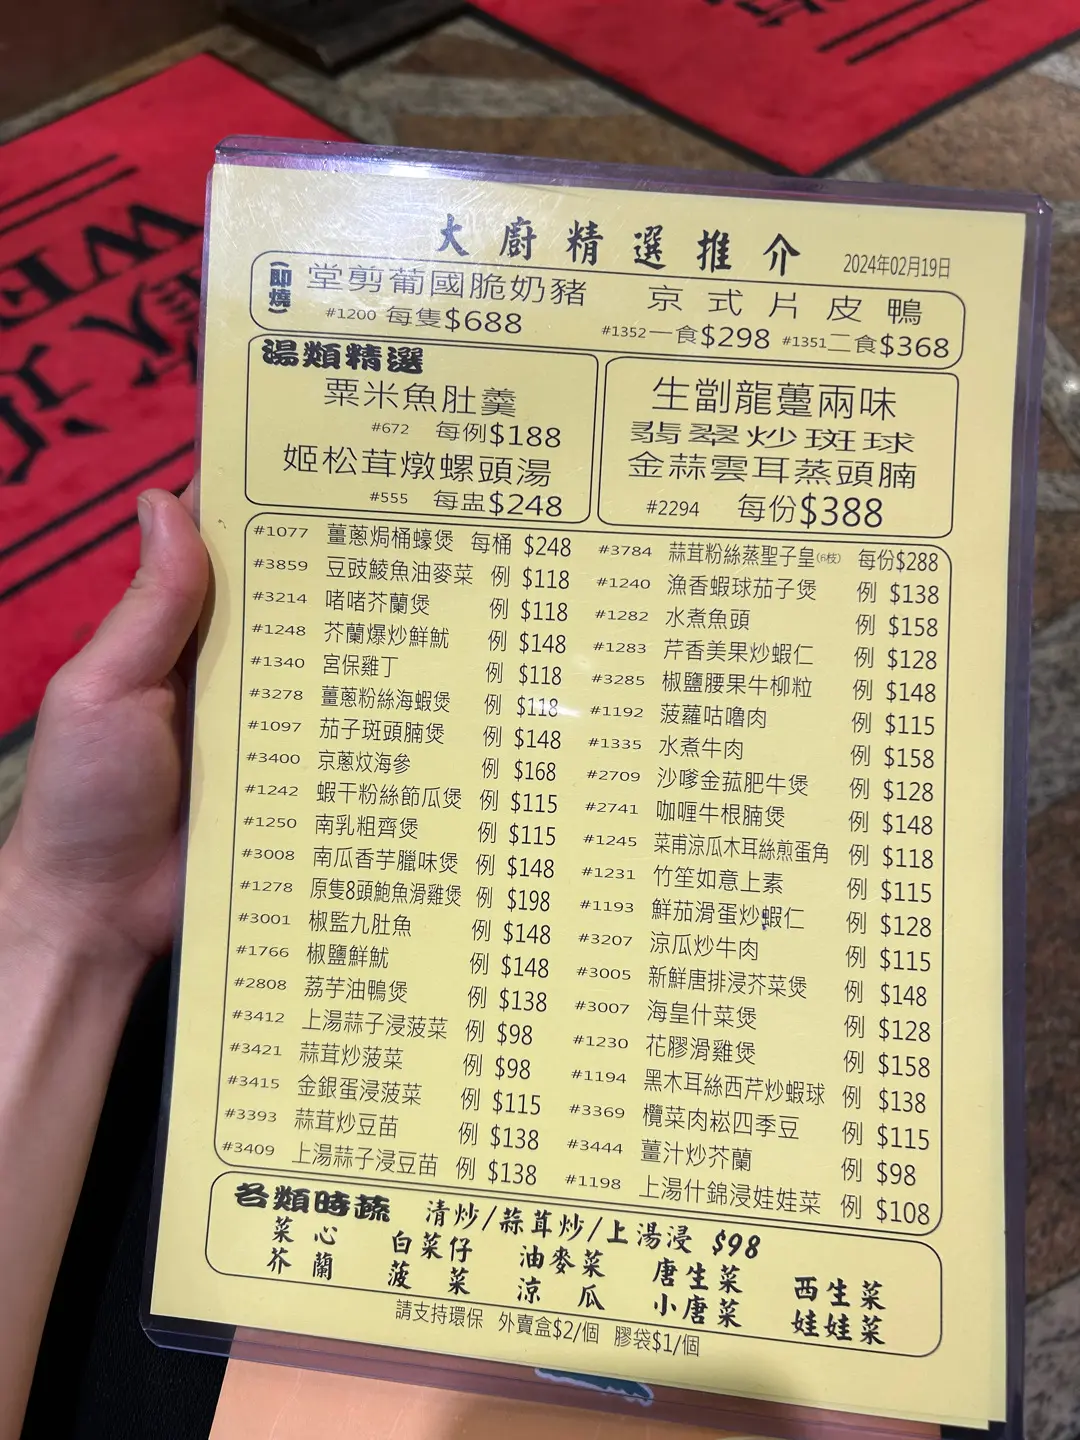 大廚精選推介 2024年02月19日
(即燒) 堂剪葡國脆奶豬
#1200 每隻$688
京式片皮鴨
#1352 一食$298 #1351 二食$368
湯類精選
粟米魚肚羹
#672 每例$188
姬松茸燉螺頭湯
#555 每盅$248
生劏龍躉兩味
翡翠炒斑球
金蒜雲耳蒸頭腩
#2294 每份$388
#1077 薑蔥焗桶蠔煲 每桶 $248
#3859 豆豉鯪魚油麥菜 例 $118
#3214 啫啫芥蘭煲 例 $118
#1248 芥蘭爆炒鮮魷 例 $148
#1340 宮保雞丁 例 $118
#3278 薑蔥粉絲海蝦煲 例 $118
#1097 茄子斑頭腩煲 例 $148
#3400 京蔥炆海參 例 $168
#1242 蝦干粉絲節瓜煲 例 $115
#1250 南乳粗齊煲 例 $115
#3008 南瓜香芋臘味煲 例 $148
#1278 原隻8頭鮑魚滑雞煲 例 $198
#3001 椒監九肚魚 例 $148
#1766 椒鹽鮮魷 例 $148
#2808 荔芋油鴨煲 例 $138
#3412 上湯蒜子浸菠菜 例 $98
#3421 蒜茸炒菠菜 例 $98
#3415 金銀蛋浸菠菜 例 $115
#3393 蒜茸炒豆苗 例 $138
#3409 上湯蒜子浸豆苗 例 $138
#3784 蒜茸粉絲蒸聖子皇(6枝) 每份$288
#1240 漁香蝦球茄子煲 例 $138
#1282 水煮魚頭 例 $158
#1283 芹香美果炒蝦仁 例 $128
#3285 椒鹽腰果牛柳粒 例 $148
#1192 菠蘿咕嚕肉 例 $115
#1335 水煮牛肉 例 $158
#2709 沙嗲金菇肥牛煲 例 $128
#2741 咖喱牛根腩煲 例 $148
#1245 菜甫涼瓜木耳絲煎蛋角 例 $118
#1231 竹笙如意上素 例 $115
#1193 鮮茄滑蛋炒蝦仁 例 $128
#3207 涼瓜炒牛肉 例 $115
#3005 新鮮唐排浸芥菜煲 例 $148
#3007 海皇什菜煲 例 $128
#1230 花膠滑雞煲 例 $158
#1194 黑木耳絲西芹炒蝦球 例 $138
#3369 欖菜肉崧四季豆 例 $115
#3444 薑汁炒芥蘭 例 $98
#1198 上湯什錦浸娃娃菜 例 $108
各類時蔬 清炒/蒜茸炒/上湯浸 $98
菜心 白菜仔 油麥菜 唐生菜 西生菜
芥蘭 菠菜 涼瓜 小唐菜 娃娃菜
請支持環保 外賣盒$2/個 膠袋$1/個